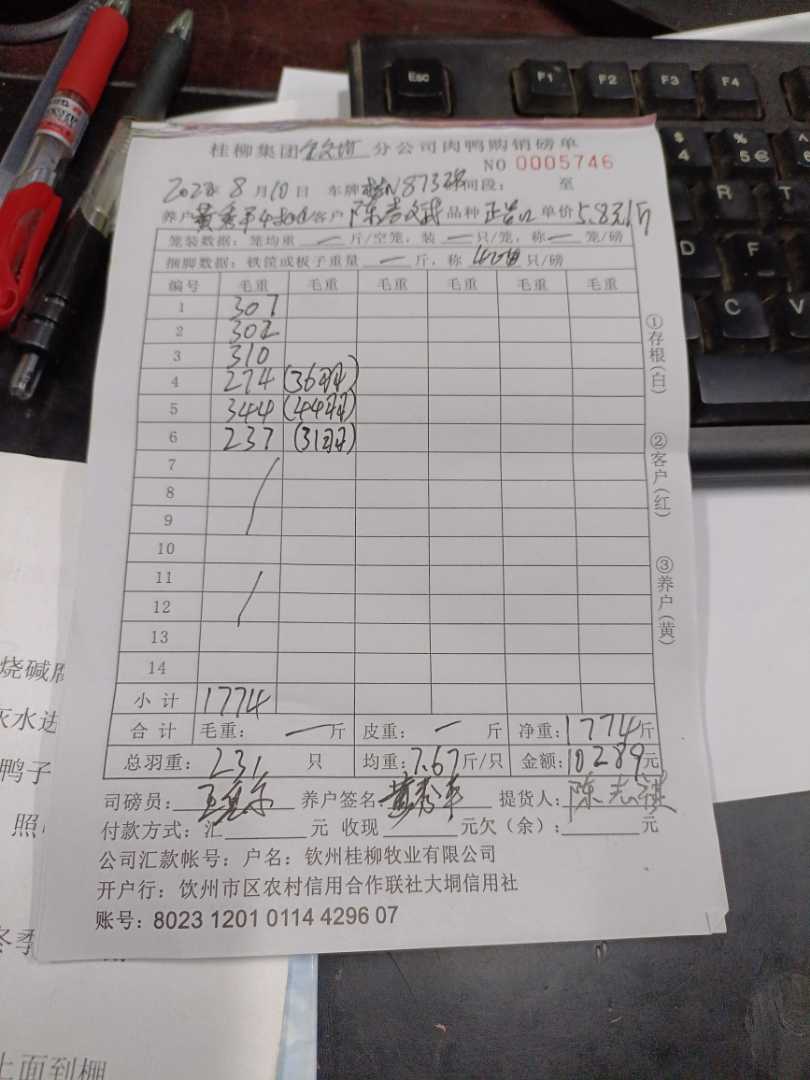 桂柳集团 分公司肉鸭购销磅单
NO 0005746
2022年 8月10日 车牌 N8735 时间段: 至
养户 黄秀平 客户 陈志斌 品种 单价 5.8元/斤
笼装数据: 笼均重 — 斤/空笼, 装 — 只/笼, 称 — 笼/磅
捆脚数据: 铁筐或板子重量 — 斤, 称 只/磅
编号 毛重 毛重 毛重 毛重 毛重 毛重
1 307
2 302
3 310
4 274 (36羽)
5 344 (44羽)
6 237 (31羽)
7
8
9
10
11
12
13
14
小计 1774
合计 毛重: — 斤 皮重: — 斤 净重: 1774斤
总羽重: 231 只 均重: 7.67斤/只 金额: 10289元
司磅员: 养户签名 黄秀平 提货人: 陈志祺
付款方式: 汇 元 收现 元欠(余): 元
公司汇款帐号: 户名: 钦州桂柳牧业有限公司
开户行: 饮州市区农村信用合作联社大垌信用社
账号: 8023 1201 0114 4296 07
①存根(白)
②客户(红)
③养户(黄)
Esc F1 F2 F3 F4
$ 4 % 5 € 6
R T
D
C V
烧碱
灰水
鸭子
照
冬季
上面到栅